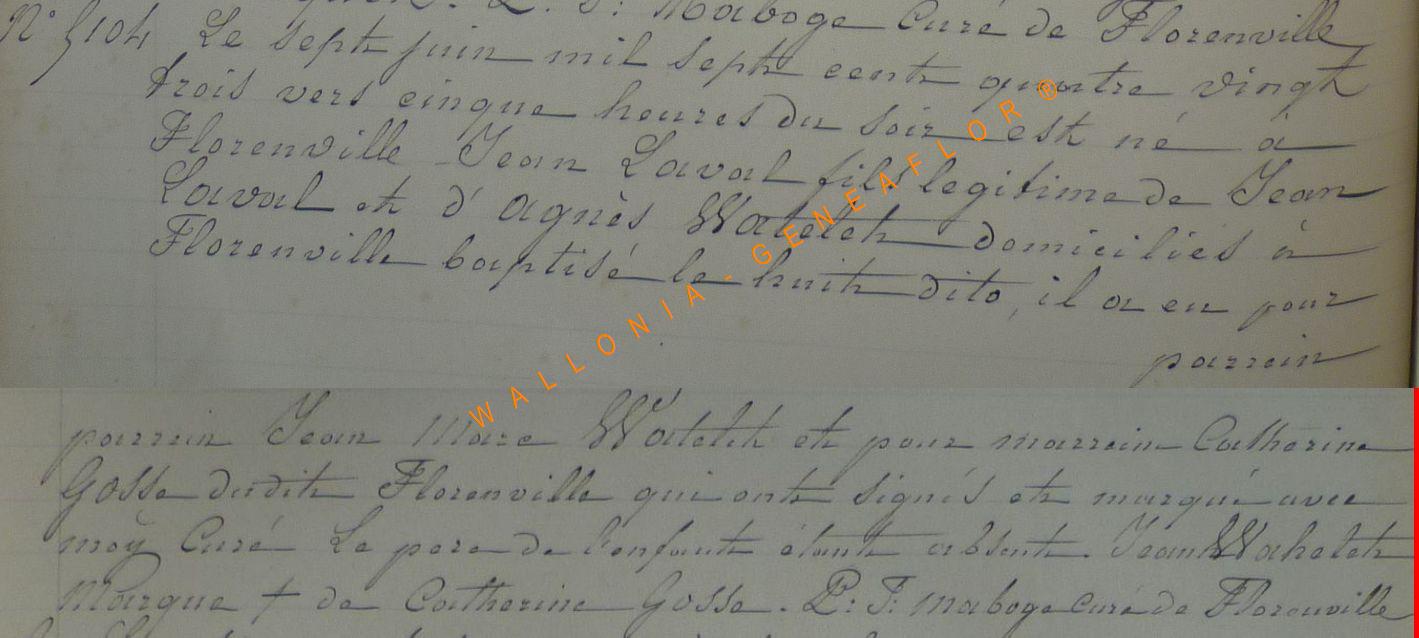 P. J: Maboge Curé de Florenville
N° 5104 Le sept juin mil sept cent quatre vingt
trois vers cinque heures du soir est né à
Florenville Jean Laval fils legitime de Jean
Laval et d'Agnès Watelet domiciliés à
Florenville baptisé le huit dito, il a eu pour
parrein
parrein Jean Marc Watelet et pour marreine Catherine
Gosse dudit Florenville qui ont signés et marqué avec
moÿ Curé Le pere de l'enfant étant absent. Jean Wahelet
Marque + de Catherine Gosse. P: J: maboge curé de Florenville
WALLONIA - GENEAFLOR ®